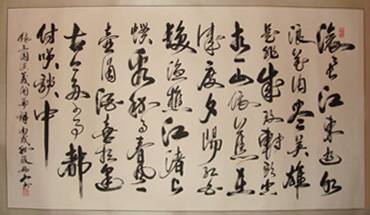 滚滚長江東逝水
浪花淘盡英雄
是非成敗轉頭空
青山依舊在
幾度夕陽紅白
髮漁樵江渚上
慣看秋月春風一
壺濁酒喜相逢
古今多少事都
付笑談中
三國演義開篇 丙戌 書